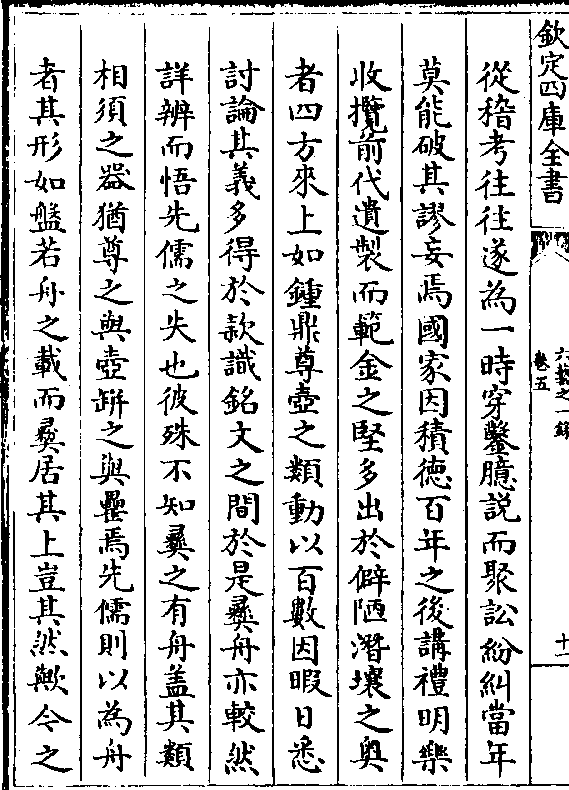 欽定四庫全書
六藝之一録
卷五
十二
從稽考往往遂為一時穿鑿臆説而聚訟紛糾當年
莫能破其謬妄焉國家因積德百年之後講禮明樂
收攬前代遺製而範金之堅多出於僻陋潛壤之奥
者四方來上如鍾鼎尊壺之類動以百數因暇日悉
討論其義多得於款識銘文之間於是彝舟亦較然
詳辨而悟先儒之失也彼殊不知彝之有舟盖其類
相須之器猶尊之與壺缾之與罍焉先儒則以為舟
者其形如盤若舟之載而彝居其上豈其然歟今之